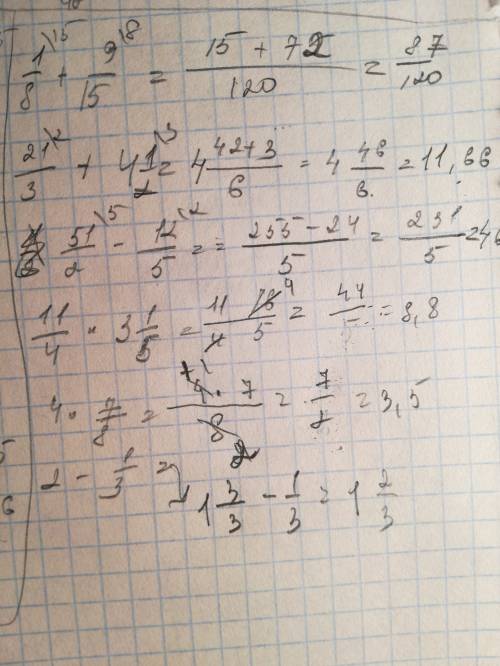 1/8 \15 + 9/15 \8 = (15 + 72)/120 = 87/120
21/3 \2 + 4 1/2 \3 = 4 (42+3)/6 = 4 46/6 = 11,66
51/2 \5 - 12/5 \2 = = (255-24)/5 = 231/5 = 46
11/4 · 3 1/5 = (11 · 16)/(4 · 5) 4 = 44/5 = 8,8
4 · 7/8 = (4 · 7)/8 1 2 = 7/2 = 3,5
2 - 1/3 = 1 3/3 - 1/3 = 1 2/3